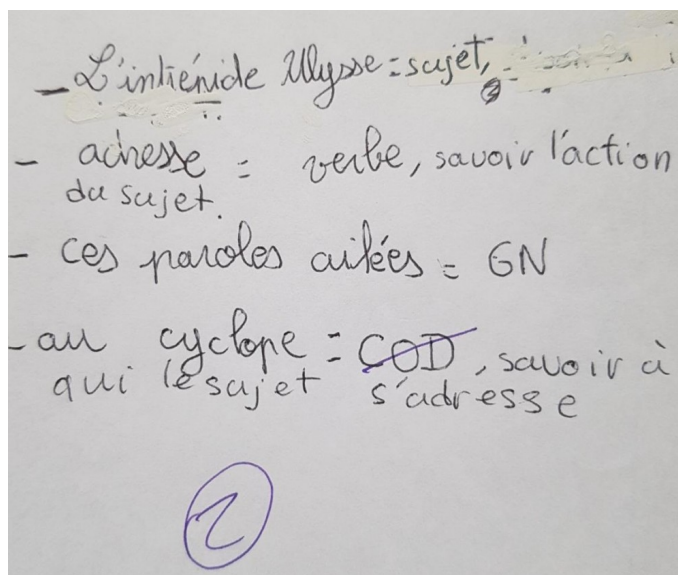 - L'intrénide Ulysse = sujet,
- adresse = verbe, savoir l'action
du sujet.
- ces paroles ailées = GN
- au cyclope = COD, savoir à
qui le sujet s'adresse
2